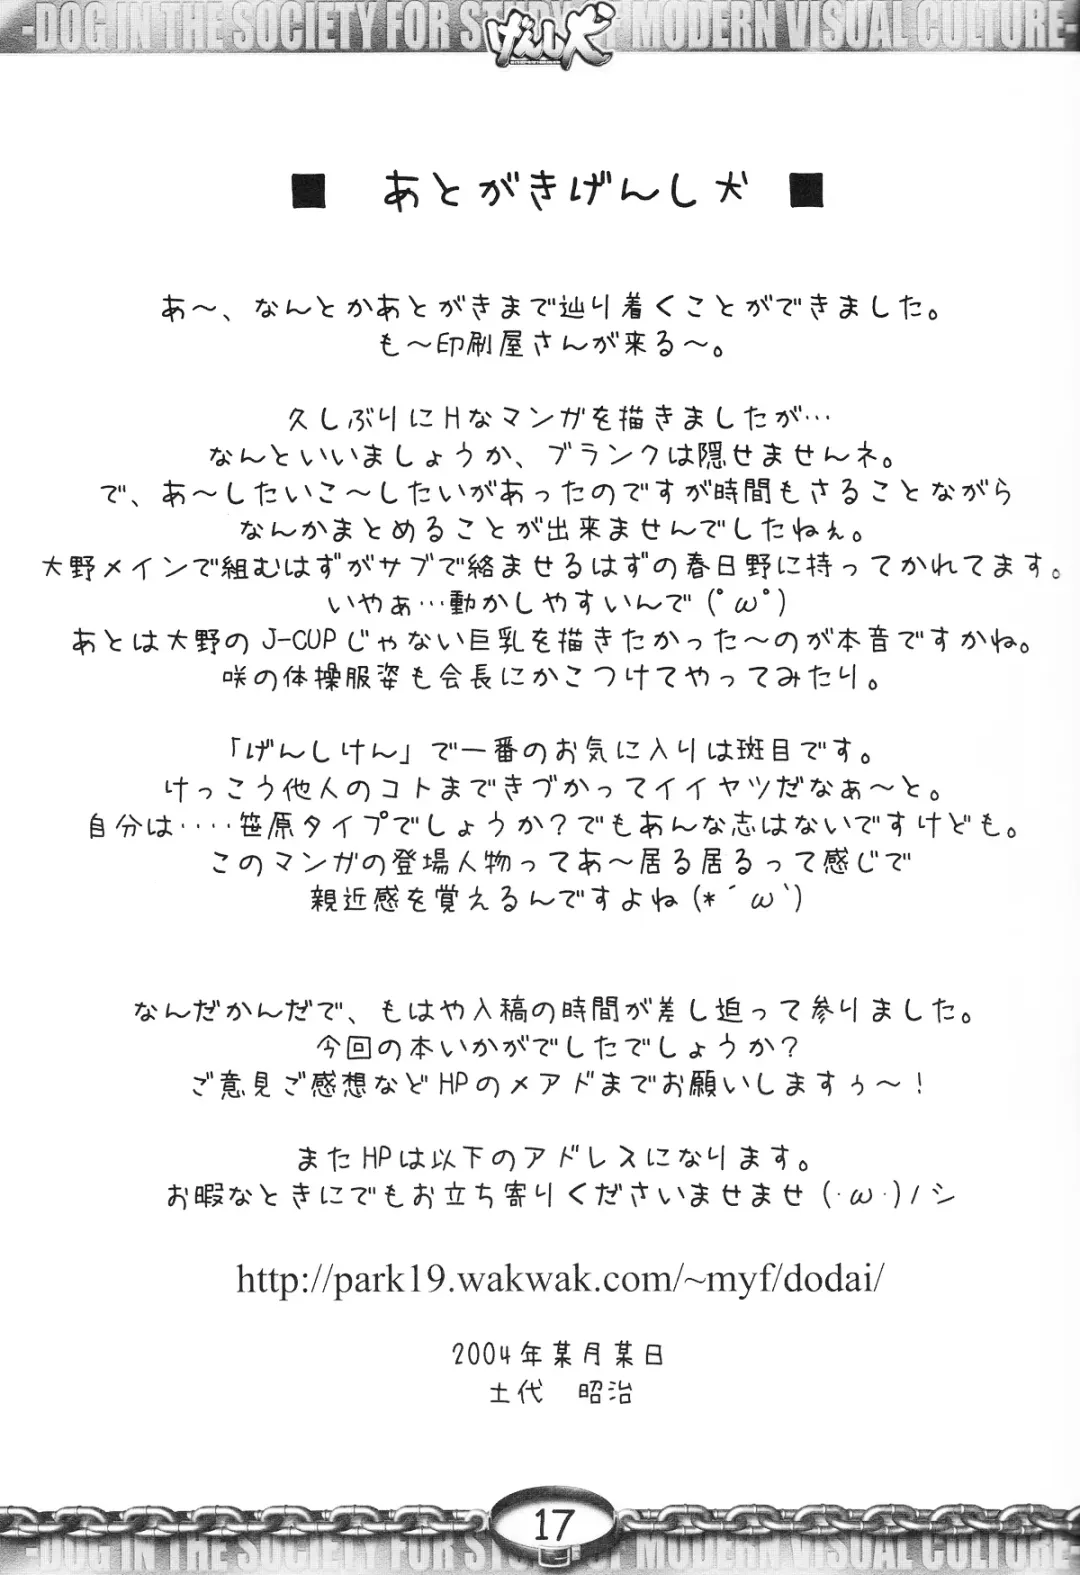 -DOG IN THE SOCIETY FOR STUDY OF MODERN VISUAL CULTURE-
げんし犬
■ あとがきげんし犬 ■
あ～、なんとかあとがきまで辿り着くことができました。
も～印刷屋さんが来る～。
久しぶりにHなマンガを描きましたが…
なんといいましょうか、ブランクは隠せませんネ。
で、あ～したいこ～したいがあったのですが時間もさることながら
なんかまとめることが出来ませんでしたねぇ。
大野メインで組むはずがサブで絡ませるはずの春日野に持ってかれてます。
いやぁ…動かしやすいんで (ﾟωﾟ)
あとは大野の J-CUPじゃない巨乳を描きたかった～のが本音ですかね。
咲の体操服姿も会長にかこつけてやってみたり。
「げんしけん」で一番のお気に入りは斑目です。
けっこう他人のコトまできづかってイイヤツだなぁ～と。
自分は‥‥笹原タイプでしょうか？でもあんな志はないですけども。
このマンガの登場人物ってあ～居る居るって感じで
親近感を覚えるんですよね (*´ω`)
なんだかんだで、もはや入稿の時間が差し迫って参りました。
今回の本いかがでしたでしょうか？
ご意見ご感想などHPのメアドまでお願いしますぅ～！
またHPは以下のアドレスになります。
お暇なときにでもお立ち寄りくださいませませ (･ω･)ﾉシ
http://park19.wakwak.com/~myf/dodai/
2004年某月某日
土代　昭治
17
-DOG IN THE SOCIETY FOR STUDY OF MODERN VISUAL CULTURE-